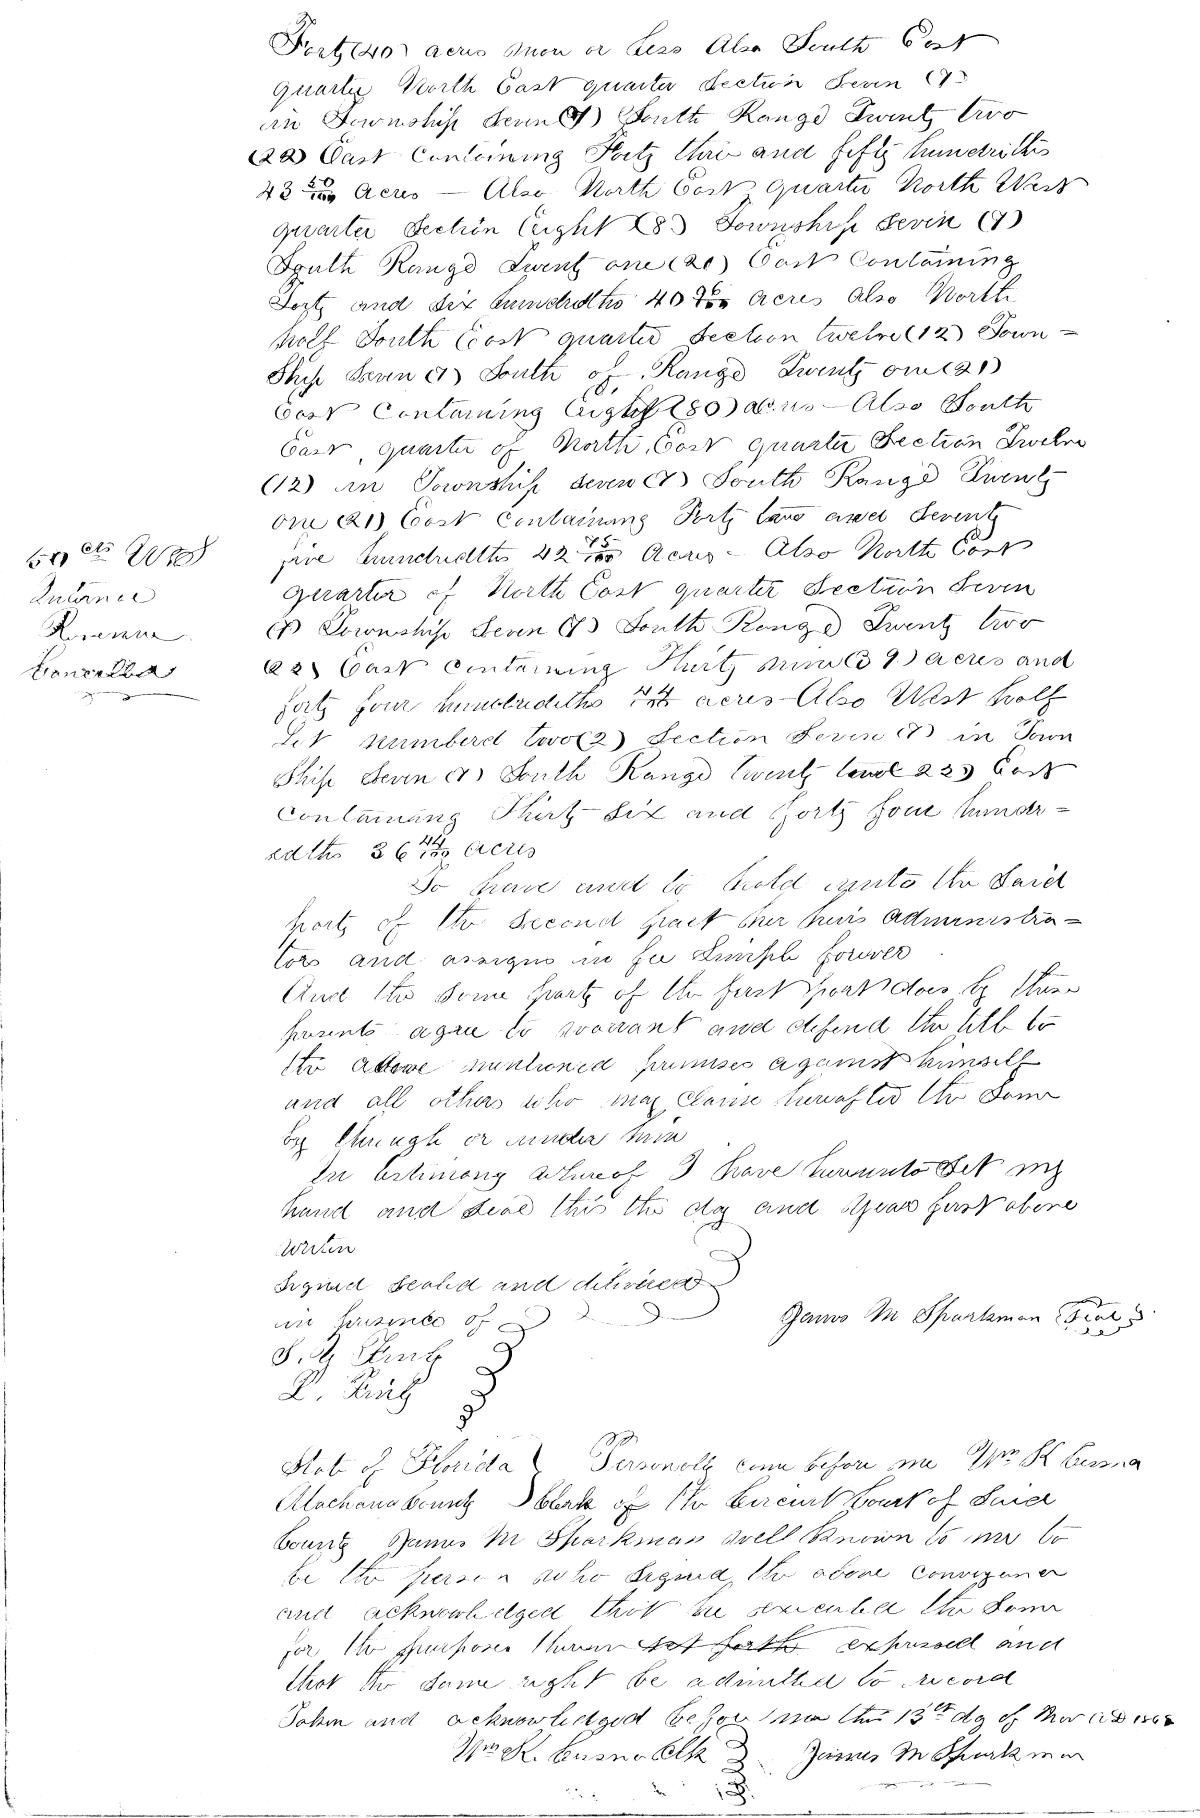 Forty (40) acres more or less Also South East
quarter North East quarter Section Seven (7)
in Township Seven (7) South Range Twenty two
(22) East Containing Forty three and fifty hundredths
43 50/100 Acres — Also North East quarter North West
quarter Section Eight (8) Township Seven (7)
South Range Twenty one (21) East Containing
Forty and six hundredths 40 06/100 acres Also North
half South East quarter Section twelve (12) Town=
Ship Seven (7) South of Range Twenty one (21)
East Containing Eighty (80) acres — Also South
East quarter of North East quarter Section Twelve
(12) in Township seven (7) South Range Twenty
one (21) East Containing Forty two and Seventy
five hundredths 42 75/100 Acres — Also North East
quarter of North East quarter Section Seven
(7) Township Seven (7) South Range Twenty two
(22) East containing Thirty nine (39) acres and
forty four hundredths 44/100 acres — Also West half
Lot numberd two (2) Section Seven (7) in Town
Ship Seven (7) South Range twenty two (22) East
Containing Thirty six and forty four hundr=
edths 36 44/100 acres
50 cts
Revenue
Cancelled
To have and to hold unto the Said
party of the second part her heirs administra=
tors and assigns in fee Simple forever
And the Same party of the first part does by these
presents agree to warrant and defend the title to
the above mentioned premises against himself
and all others who may claim hereafter the Same
by through or under him
In testimony whereof I have hereunto Set my
hand and seal this the day and Year first above
writen
Signed sealed and delivered
in presence of
James M Sparkman Seal
State of Florida Personally came before me Wm K Cessna
Alachua County Clerk of the Circuit Court of Said
County James M Sparkman well Known to me to
be the person who signed the above conveyance
and acknowledged that he executed the Same
for the purposes therein set forth expressed and
that the same might be admitted to record
Taken and acknowledged before me this 13th day of Nov AD
Wm K. Cessna Clk James M Sparkman